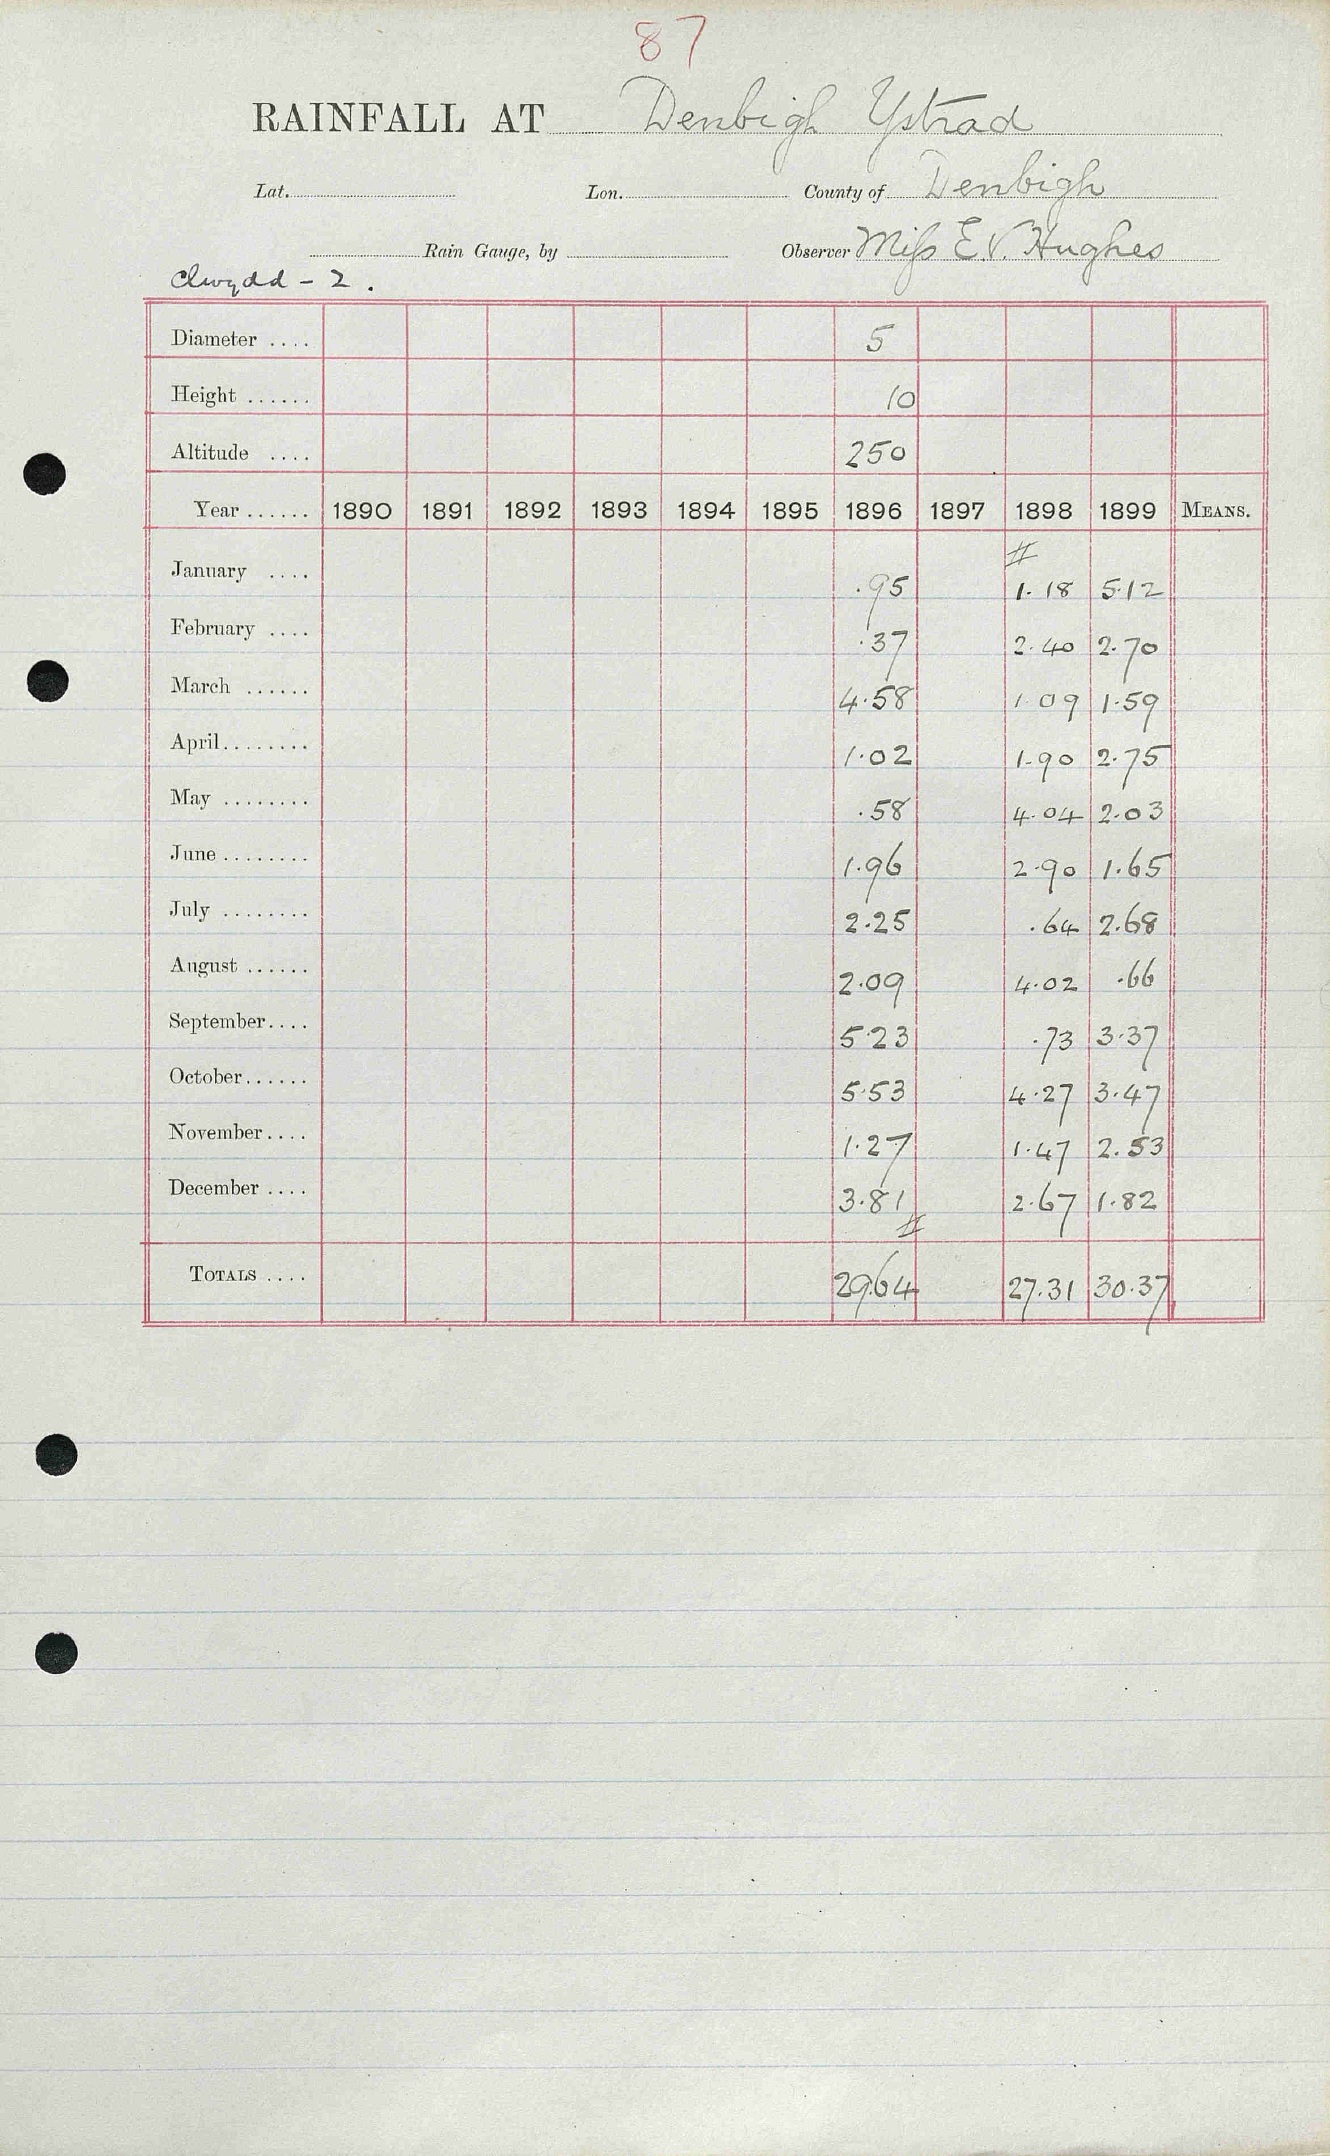 87
RAINFALL AT Denbigh Ystrad
Lat. Lon. County of Denbigh
Rain Gauge, by Observer Miss E.V. Hughes
Clwydd - 2.
Diameter .... 5
Height ...... 10
Altitude .... 250
Year ...... 1890 1891 1892 1893 1894 1895 1896 1897 1898 1899 MEANS.
#
January .... .95 1.18 5.12
February .... .37 2.40 2.70
March ...... 4.58 1.09 1.59
April........ 1.02 1.90 2.75
May ........ .58 4.04 2.03
June ........ 1.96 2.90 1.65
July ........ 2.25 .64 2.68
August ...... 2.09 4.02 .66
September.... 5.23 .73 3.37
October...... 5.53 4.27 3.47
November.... 1.27 1.47 2.53
December .... 3.81 2.67 1.82
#
TOTALS .... 29.64 27.31 30.37